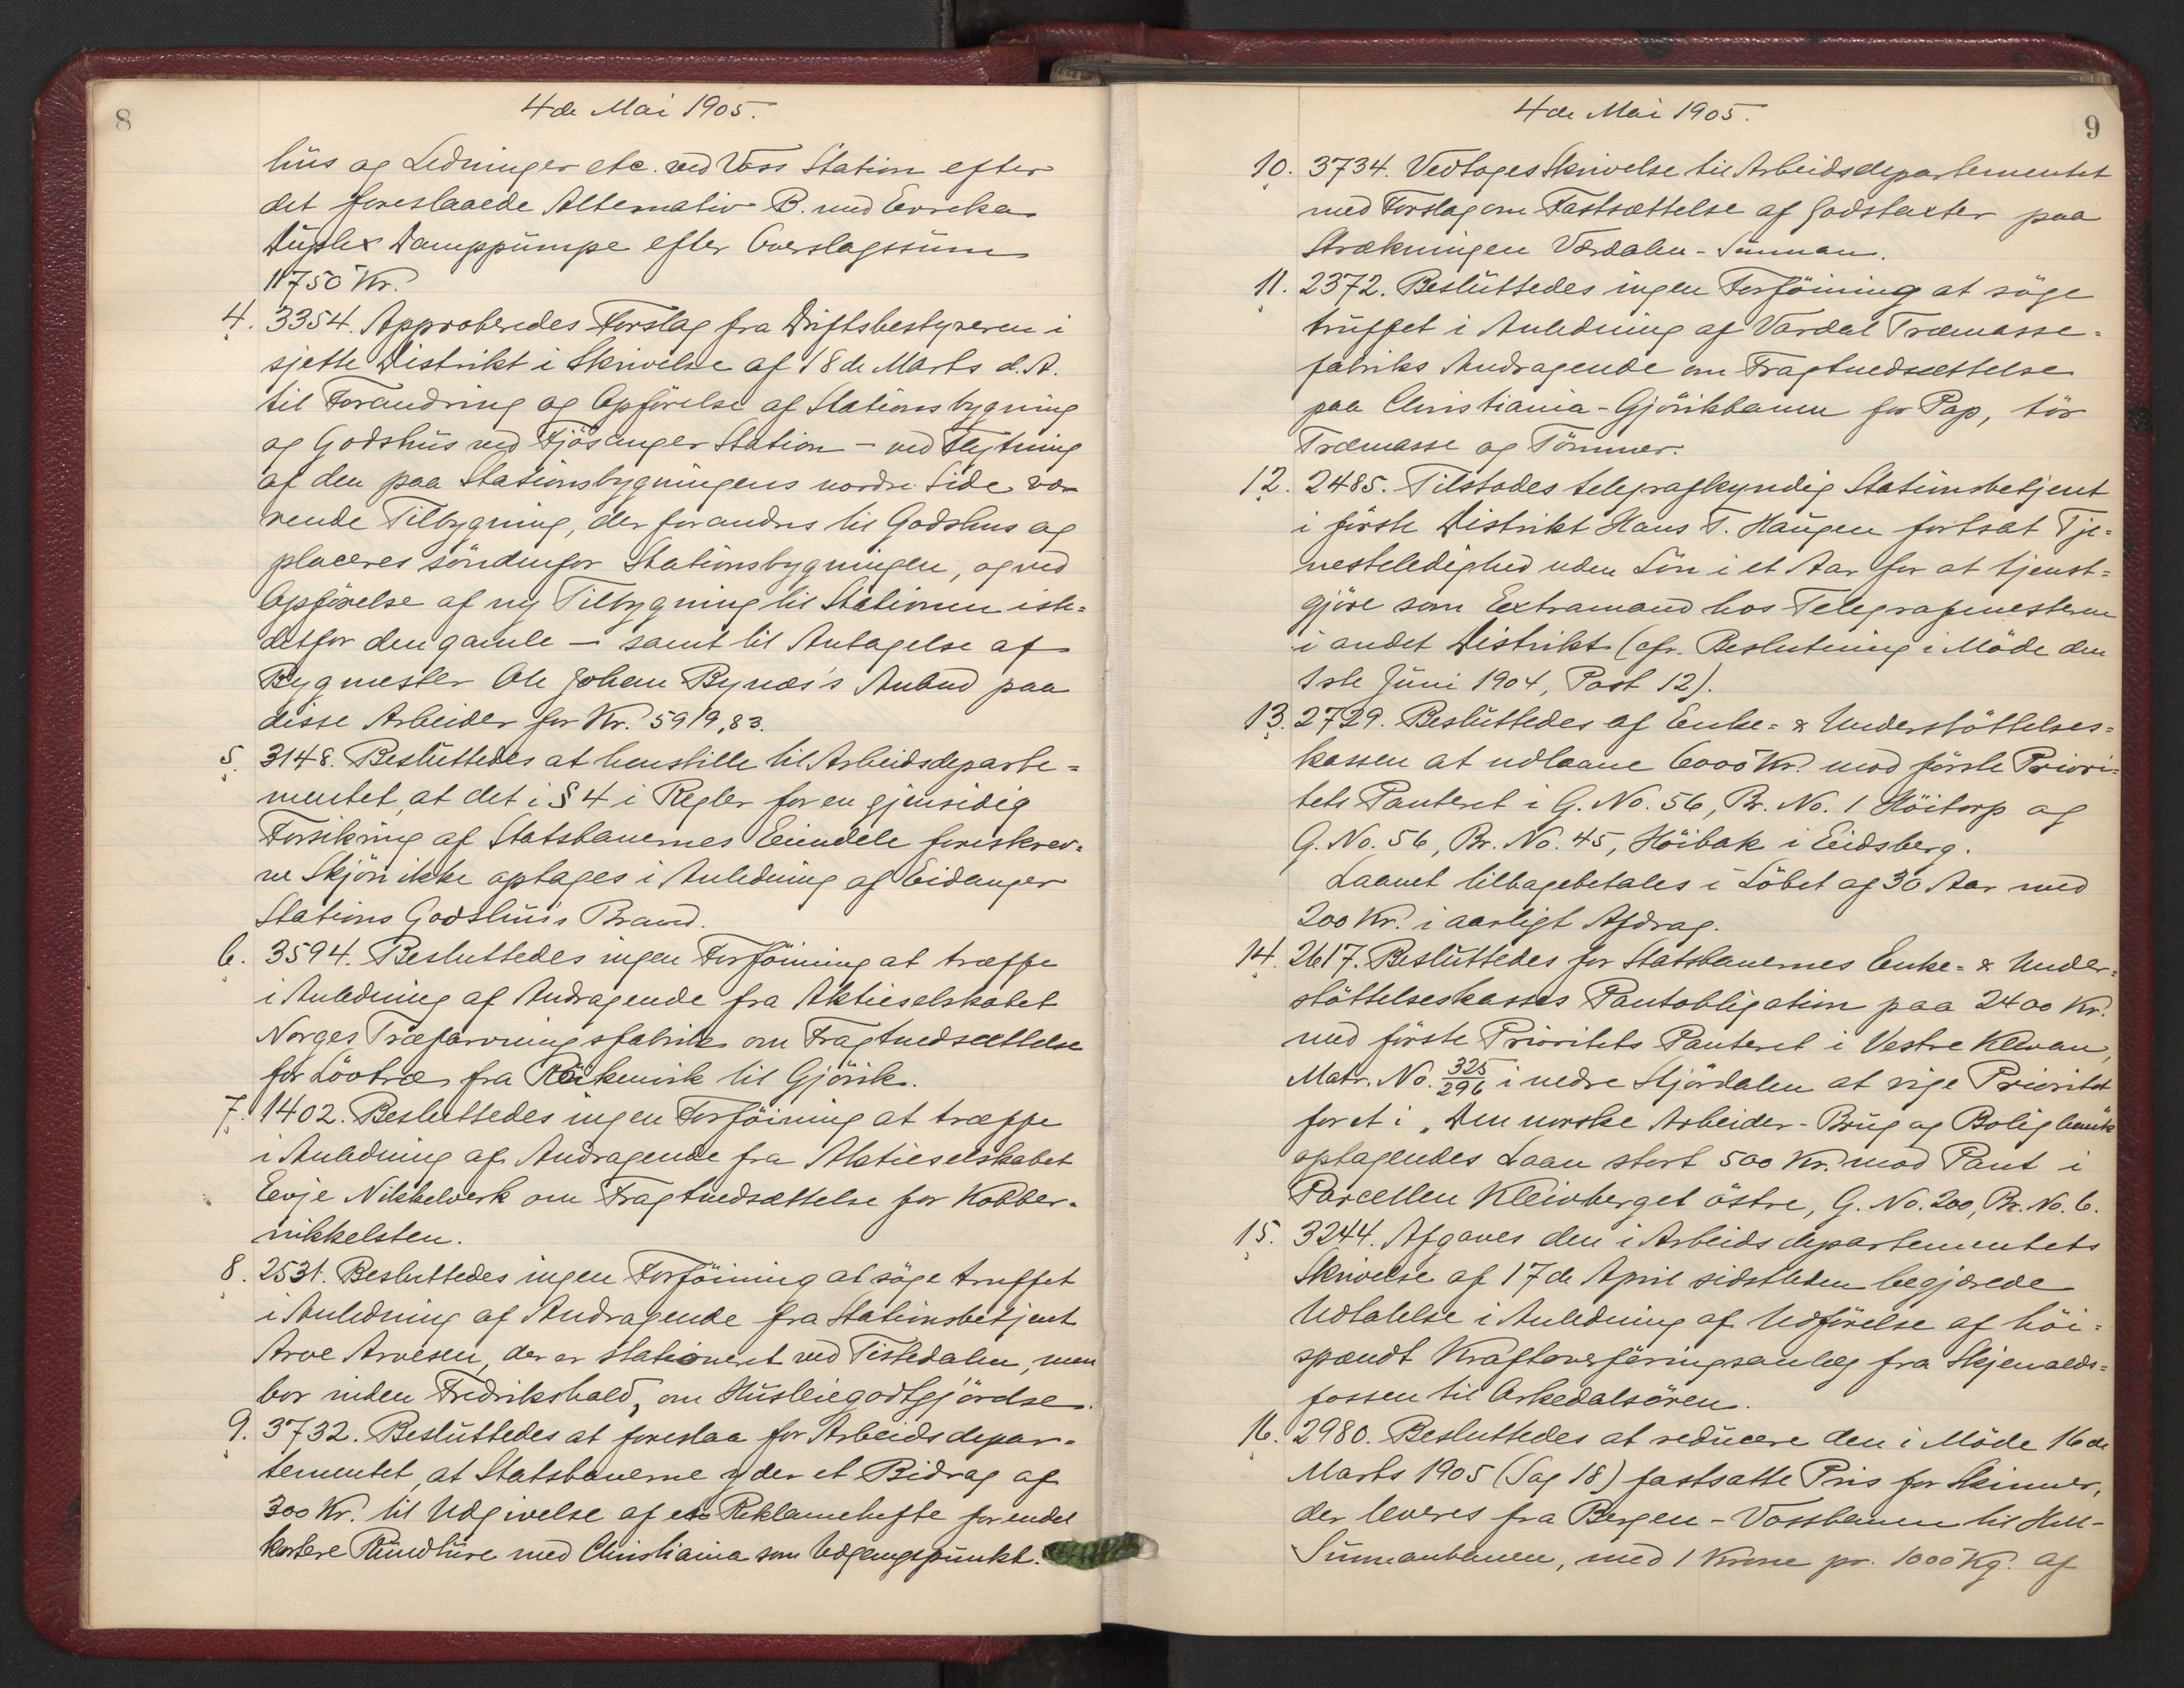 8
4de Mai 1905.
hus og Ledninger etc. ved Voss Station efter
det foreslaaede Alternativ B. med Evreka
Duplex Damppumpe efter Overslagssum
11750 Kr.
4. 3354. Approberedes Forslag fra Driftsbestyreren i
sjette Distrikt i Skrivelse af 18de Marts d. A.
til Forandring og Opførelse af Stationsbygning
og Godshus ved Fjösanger Station – ved Flytning
af den paa Stationsbygningens nordre Side væ-
rende Tilbygning, der forandres til Godshus og
placeres söndenfor Stationsbygningen, og ved
Opförelse af ny Tilbygning til Stationen iste=
detfor den gamle – samt til Antagelse af
Bygmester Ole Johan Bynæs's Anbud paa
disse Arbeider for Kr. 5919,83.
5. 3148. Besluttedes at henstille til Arbeidsdeparte=
mentet, at det i § 4 i Regler for en gjensidig
Forsikring af Statsbanernes Eiendele foreskrev=
ne Skjön ikke optages i Anledning af Eidanger
Stations Godshus's Brand.
6. 3594. Besluttedes ingen Forföining at træffe
i Anledning af Andragende fra Aktieselskabet
Norges Træfarvningsfabrik om Fragtnedsættelse
for Lövtræ fra Reikenvik til Gjövik.
7. 1402. Besluttedes ingen Forföining at træffe
i Anledning af Andragende fra Aktieselskabet
Evje Nikkelverk om Fragtnedsættelse for Kobber-
nikkelsten.
8. 2531. Besluttedes ingen Forföining at söge truffet
i Anledning af Andragende fra Stationsbetjent
Arve Arvesen, der er stationeret ved Tistedalen, men
bor inden Fredrikshald, om Husleiegodtgjörelse.
9. 3732. Besluttedes at foreslaa for Arbeidsdepar-
tementet, at Statsbanerne yder et Bidrag af
300 Kr. til Udgivelse af et Reklamehefte for endel
kortere Rundture med Christiania som Udgangspunkt.
9
4de Mai 1905.
10. 3734. Vedtoges Skrivelse til Arbeidsdepartementet
med Forslag om Fastsættelse af Godstaxter paa
Strækningen Værdalen-Sunnan.
11. 2372. Besluttedes ingen Forföining at söge
truffet i Anledning af Vardal Træmasse=
fabriks Andragende om Fragtnedsættelse
paa Christiania-Gjövikbanen for Pap, tör
Træmasse og Tömmer.
12. 2485. Tilstodes telegrafkyndig Stationsbetjent
i förste Distrikt Hans T. Haugen fortsat Tje=
nesteledighed uden Lön i et Aar for at tjenst=
gjöre som Extramand hos Telegrafmesteren
i andet Distrikt (cfr. Beslutning i Möde den
1ste Juni 1904, Post 12).
13. 2729. Besluttedes af Enke= & Understöttelses=
kassen at udlaane 6000 Kr. mod förste Priori=
tets Panteret i G. No. 56, Br. No. 1 Höitorp og
G. No. 56, Br. No. 45, Höibak i Eidsberg.
Laanet tilbagebetales i Löbet af 30 Aar med
200 Kr. i aarligt Afdrag.
14. 2617. Besluttedes for Statsbanernes Enke= & Under=
stöttelseskasses Pantobligation paa 2400 Kr.
med förste Prioritets Panteret i Vestre Klevan,
Matr. No. 325/296 i nedre Stjördalen at vige Prioritet
for et i „Den norske Arbeider-Brug og Boligbank
optagendes Laan stort 500 Kr. mod Pant i
Parcellen Kleivberget östre, G. No. 200, Br. No. 6.
15. 3244. Afgaves den i Arbeidsdepartementets
Skrivelse af 17de April sidstleden begjærede
Udtalelse i Anledning af Udförelse af höi=
spændt Kraftoverföringsanlæg fra Skjenalds=
fossen til Orkedalsören.
16. 2980. Besluttedes at reducere den i Möde 16de
Marts 1905 (Sag 18) fastsatte Pris for Skinner,
der leveres fra Bergen-Vossbanen til Hell-
Sunnanbanen, med 1 Krone pr. 1000 Kg. af